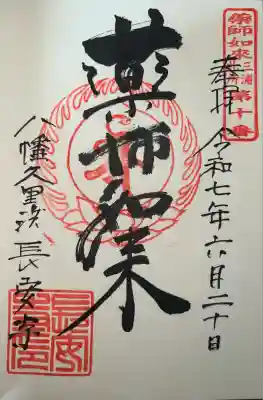 薬師如来三浦
第十番
奉拝 令和七年六月二十日
薬師如来
八幡久里浜 長安寺